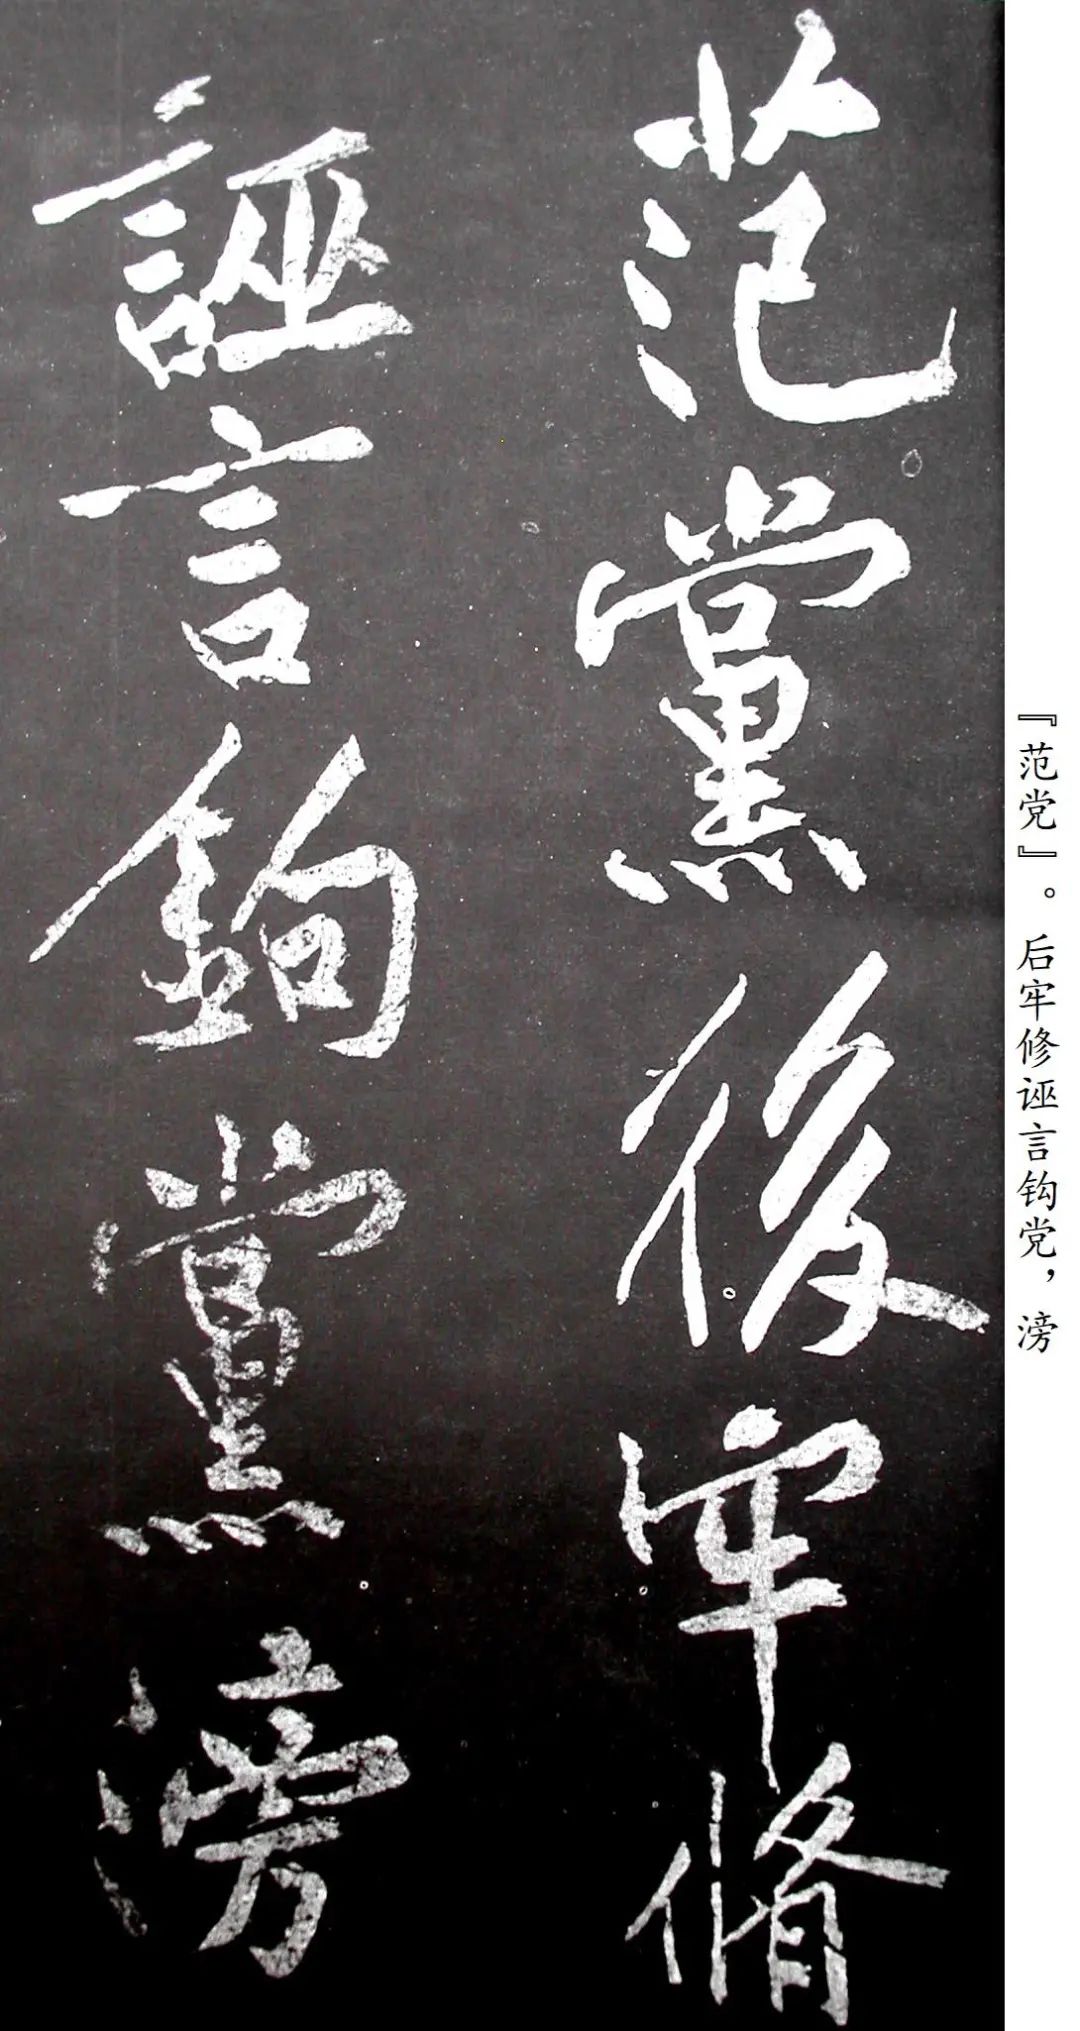 范黨後牢脩
誣言鉤黨滂
『范党』。后牢修诬言钩党，滂